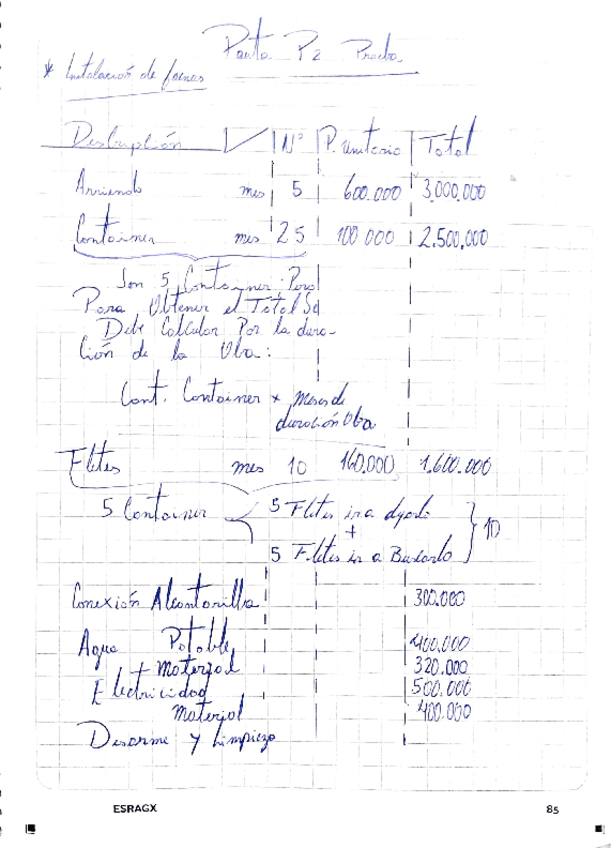 Pauta P2 Prueba
* Instalación de faenas
Descripción N° P. Unitario Total
Arriendo mes 5 600.000 3.000.000
Container mes 25 100 000 2.500.000
Son 5 Container Pero
Para Obtener el Total Se
Debe Calcular Por la dura-
ción de la Obra:
Cant. Container x Meses de
duración Obra
Fletes mes 10 160.000 1.600.000
5 Container 5 Fletes ir a dejarlo
+ 10
5 Fletes ir a Buscarlo
Conexión Alcantarilla 300.000
Agua Potable 400.000
+ Material 320.000
Electricidad 500.000
Material 400.000
Desarme y Limpieza
ESRAGX 85